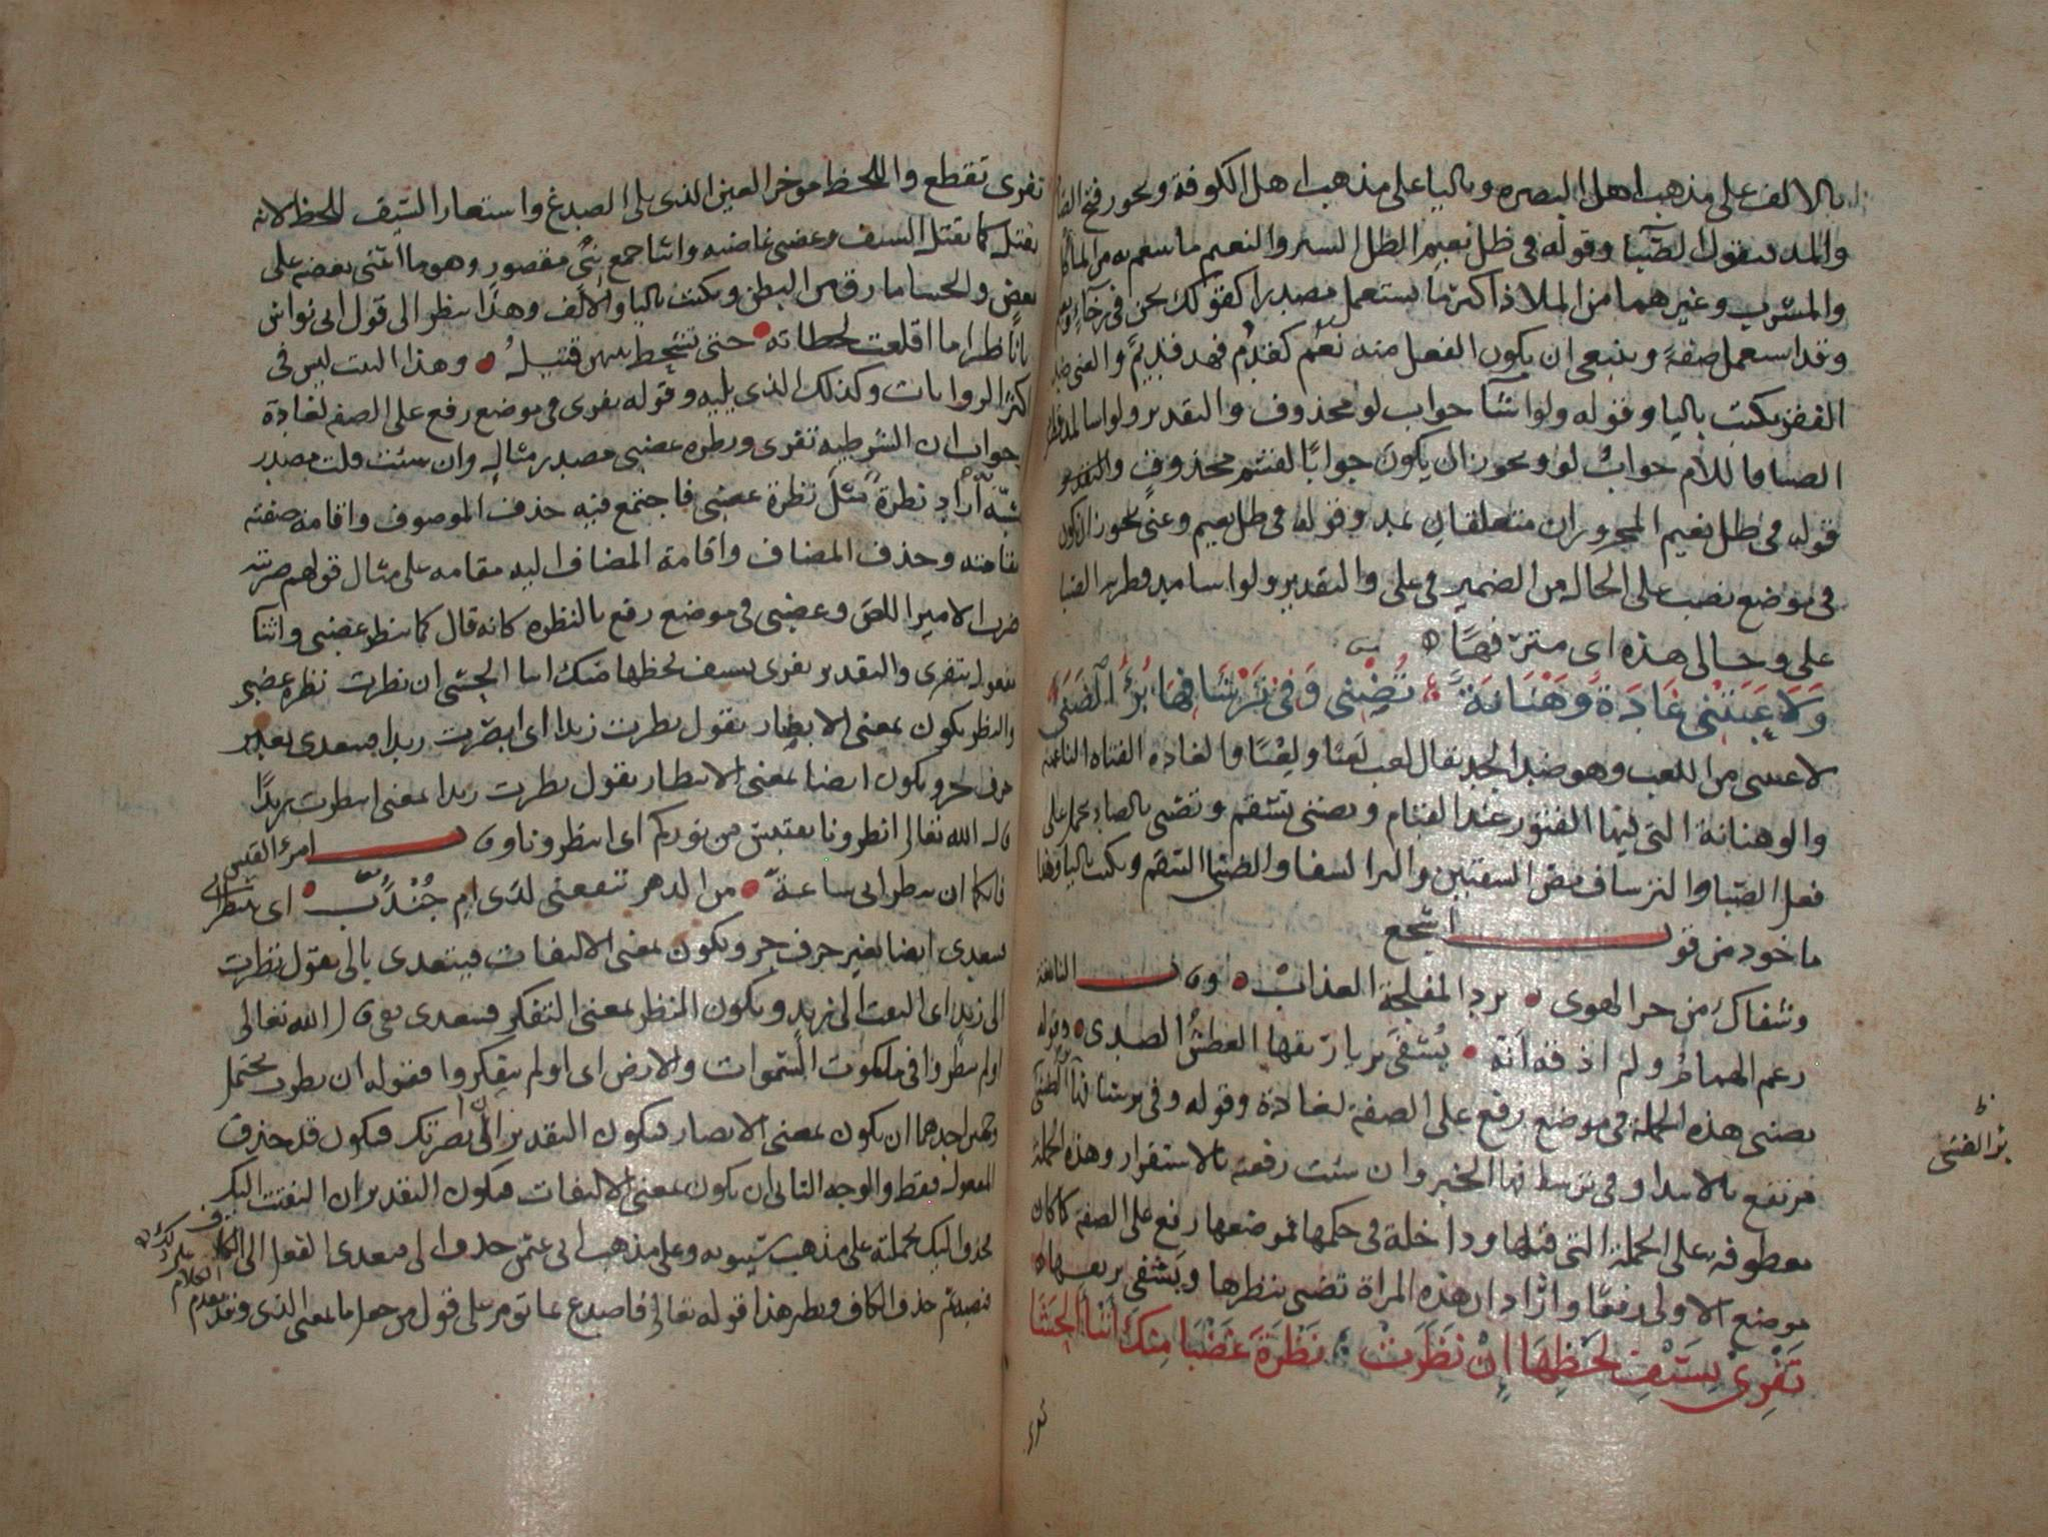 بالالف على مذهب اهل البصره وباليا على مذهب اهل الكوفة ويجوز فتح
والمد فيقول الصَّبآ وقوله في ظل نعيم الظل الستر والنعيم ما ينعم به من
والمشرب وغيرهما من الملاذ اكثر ما يستعمل مصدرا كقولك نحن في رخآء
وقد استعمل صفةً وينبغي ان يكون الفعل منه نَعُم كقدُم فهو قديم والغنى ضد
الفقر يكتب باليا وقوله ولو اشآ جواب لو محذوف والتقدير ولو اسا
الصبا فاللام جوابُ لو ويجوز ان يكون جوابًا لقسم محذوف والتقدير
قوله في ظل نعيم المجروران متعلقان بمد وقوله في ظل نعيم وغنى يجوز ان يكون
في موضع نصب على الحال من الضمير في على والتقدير ولو اسا ميد قطريه الصبا
على وحالى هذه اى مترفهًا
وَلَاعَبَتْنِي غَادَةٌ وَهْنَانَةٌ تُضْنِي وَفِي تَرْشَافِهَا بُرْءُ الضَّنَى
لاعبتنى من اللعب وهو ضد الجد يقال لعب لَعِبًا ولِعْبًا والغاده الفتاه الناعمة
والوهنانة التى فيها الفتور عند القيام وتضنى تسقم وتصبى بالصاد تحمل على
فعل الصّبا والترشاف مص الشفتين والبرا الشفا والضنى السقم ويكتب باليا وهذا
ماخوذ من قول اشجع
وشفاك من حر الهوى برد المفلجة العذاب وقال النابغة
زعم الهمامُ ولم اذقه انه يُشفى بريا ريقها العطشُ الصدى وقوله
تضنى هذه الجملة في موضع رفع على الصفة لغادة وقوله وفي ترشافها برء الضنى
مرتفع بالابتدا وفي ترشافها الخبر وان شئت رفعته بالاستقرار وهذه الجملة
معطوفه على الجملة التى قبلها وداخلة في حكمها فموضعها رفع على الصفة كما كان
موضع الاولى رفعًا وارًاد ان هذه المراة تضنى بنظرها ويَشفى بريقها
تَفْرِي بِسَيْفِ لَحْظِهَا اِنْ نَظَرَتْ نَظْرَةَ غَضْبَى مِنْكَ اَثْنَاءَ الْحَشَا
تفرى
برء الضنى
تفرى تقطع واللحظ موخر العين الذى يلى الصدغ واستعار السَّيف للحظ لانه
يقتل كما يقتل السيف وغضبى غاضبه واثنا جمع ثِنْى مقصور وهو ما اثنى بعضه على
بعض والحشا ما رق من البطن ويكتب باليا والالف وهذا ينظر الى قول ابى نواس
يا ناظرا ما اقلعت لحظاته حتى تشحط بينهن قتيلُ وهذا البيت ليس في
اكثر الروايات وكذلك الذى يليه وقوله تفرى في موضع رفع على الصفه لغادة
جواب ان الشرطيه تفرى ونظرة غضبى مصدر مثاله وان شئت قلت مصدر
شبّه اراد نظرةً مثلَ نظرة غضبى فاجتمع فيه حذف الموصوف واقامة صفته
مقامه وحذف المضاف واقامة المضاف اليه مقامه على مثال قولهم ضربته
ضرب الامير اللص وغضبى في موضع رفع بالنظره كانه قال كما ينظر غضبى واثنا
مفعوله بتفرى والتقدير تفرى بسيف لحظها منك اسا الحشى ان نظرت نظرة غضبى
والنظر يكون بمعنى الابصار يقول نظرت زيدا اى ابصرت زيدا فيتعدى بغير
حرف جر ويكون ايضا بمعنى الانتظار يقول نظرت زيدا بمعنى انتظرت زيدًا
قال الله تعالى انظرونا نقتبس من نوركم اى انتظرونا وقال امرء القيس
فانكما ان تنظرانى ساعةً من الدهر تنفعنى لدى ام جُنْدَبِ اى تنتظرانى
يتعدى ايضا بغير حرف جر ويكون بمعنى الالتفات فيتعدى بالى يقول نظرت
الى زيد اى التفت الى زيد ويكون النظر بمعنى التفكر فيتعدى بفى قال الله تعالى
اولم ينظروا في ملكوت السموات والارض اى اولم يتفكروا فقوله ان نظرت يحتمل
وجهين احدهما ان يكون بمعنى الابصار فيكون التقدير ان ابصرتك فيكون قد حذف
المفعول فقط والوجه الثانى ان يكون بمعنى الالتفات فيكون التقدير ان التفتت اليك
فحذف اليك بجملته على مذهب سيبويه وعلى مذهب ابى عثمن حذف الى فيعدى الفعل الى الكاف
فنصبه ثم حذف الكاف ونظير هذا قوله تعالى فاصدع بما تومر على قول من جعل ما بمعنى الذى وقد تقدم
الكلام
على ذلك